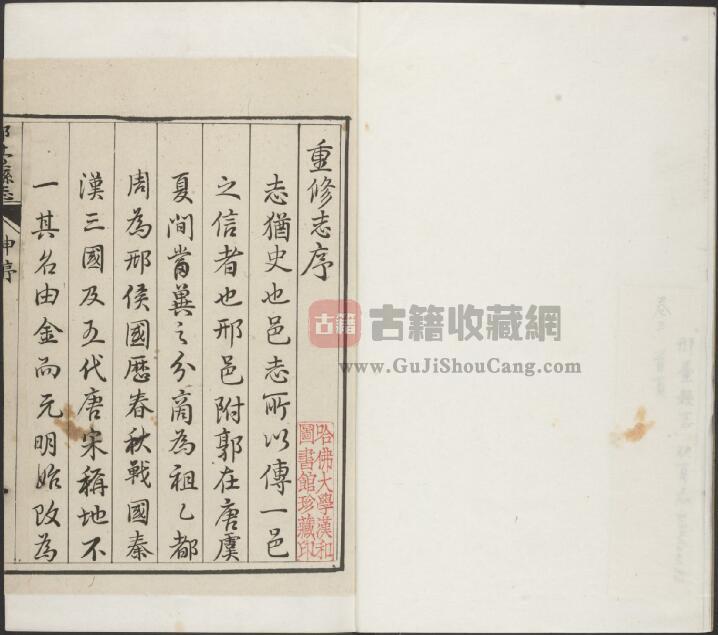 重修志序
志猶史也邑志所以傳一邑
之信者也邢邑附郭在唐虞
夏間當冀之分商為祖乙都
周為邢侯國歷春秋戰國秦
漢三國及五代唐宋稱地不
一其名由金而元明始改為
申序
哈佛大學漢和
圖書館珍藏印
古籍
古籍收藏網
www.GuJiShouCang.com